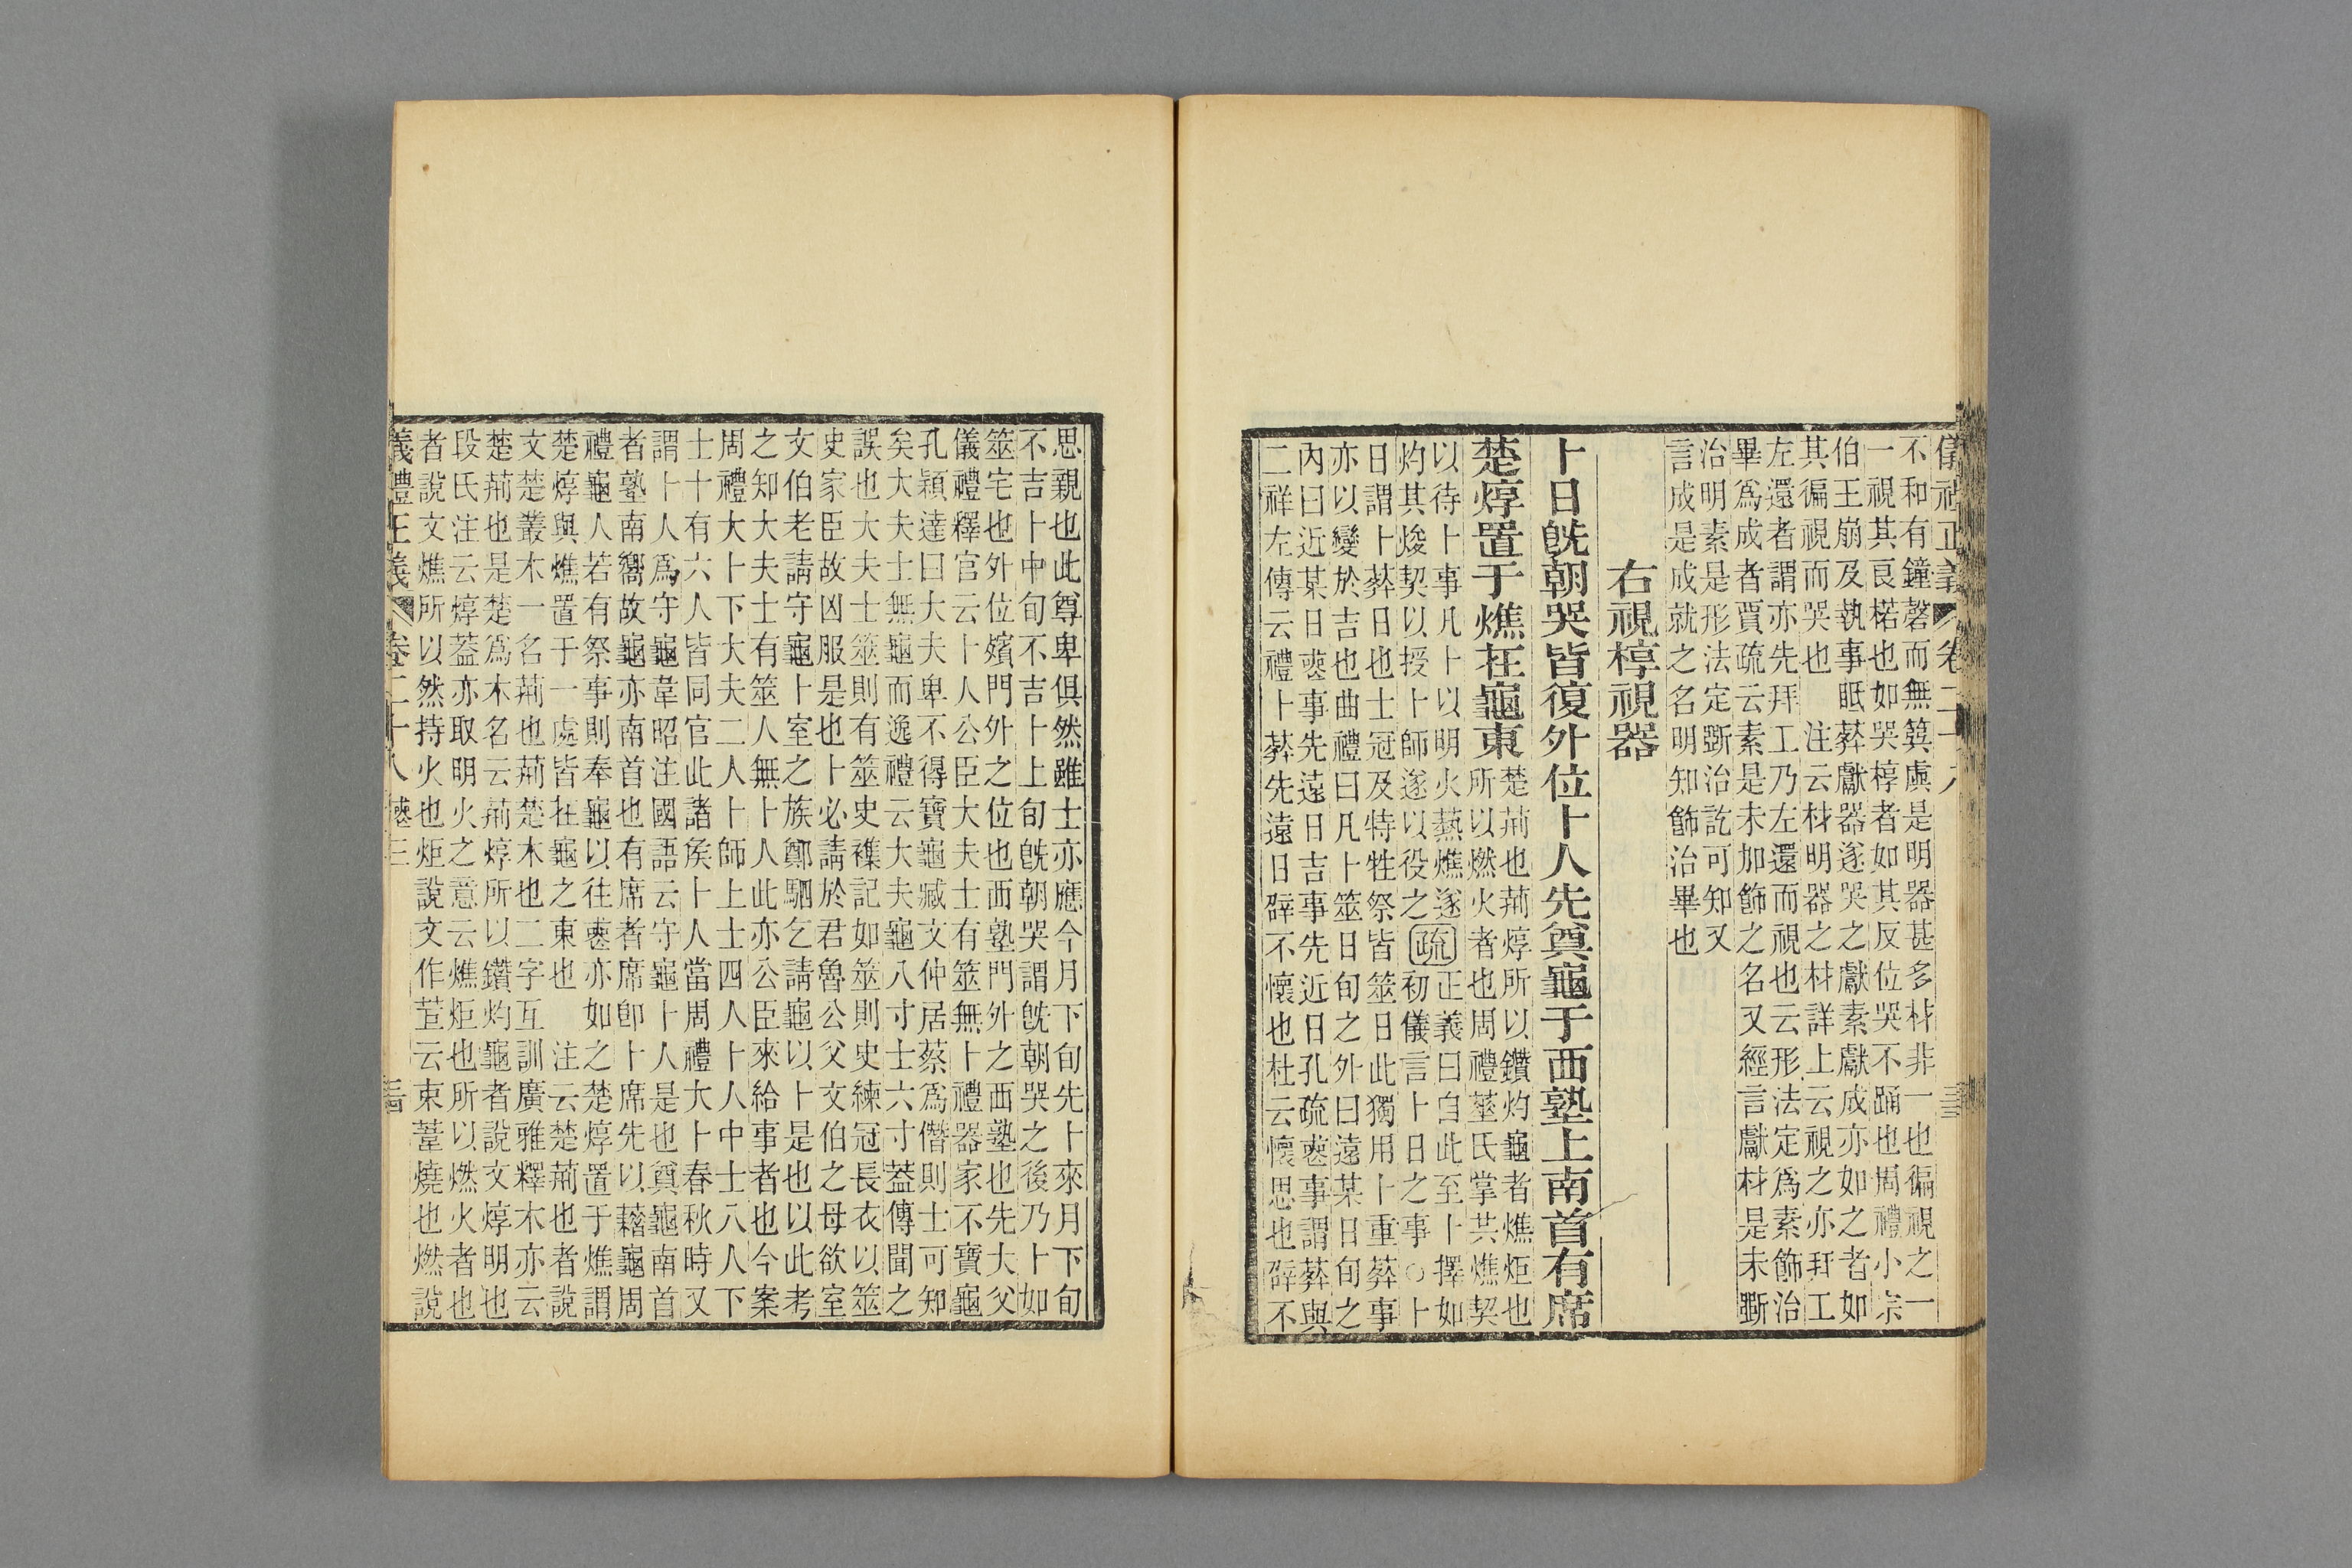 儀禮正義 卷二十八
不和有鐘磬而無簨虡是明器甚多材非一也徧視之一
一視其良楛也如哭椁者如其反位哭不踊也周禮小宗
伯王崩及執事眡葬獻器遂哭之獻素獻成亦如之者如
其徧視而哭也 注云材明器之材詳上云視之亦拜工
左還者謂亦先拜工乃左還而視也云形法定爲素飾治
畢爲成者賈疏云素是未加飾之名又經言獻材是未斲
治明素是形法定斲治訖可知又
言成是成就之名明知飾治畢也
右視椁視器
卜日旣朝哭皆復外位卜人先奠龜于西塾上南首有席
楚焞置于燋在龜東
楚荊也荊焞所以鑽灼龜者燋炬也
所以燃火者也周禮菙氏掌共燋契
以待卜事凡卜以明火爇燋遂
灼其焌契以授卜師遂以役之
疏
正義曰自此至卜擇如
初儀言卜日之事○卜
日謂卜葬日也士冠及特牲祭皆筮日此獨用卜重葬事
亦以變於吉也曲禮曰凡卜筮日旬之外曰遠某日旬之
內曰近某日喪事先遠日吉事先近日孔疏喪事謂葬與
二祥左傳云禮卜葬先遠日辟不懷也杜云懷思也辟不
思親也此尊卑俱然雖士亦應今月下旬先卜來月下旬
不吉卜中旬不吉卜上旬旣朝哭謂旣朝哭之後乃卜如
筮宅也外位殯門外之位也西塾門外之西塾也先大父
儀禮釋官云卜人公臣大夫士有筮無卜禮器家不寶龜
孔穎達曰大夫卑不得寶龜臧文仲居蔡爲僭則士可知
矣大夫士無龜而逸禮云大夫龜八寸士六寸蓋傳聞之
誤也大夫士筮則有筮史襍記如筮則史練冠長衣以筮
史家臣故凶服是也卜必請於君魯公父文伯之母欲室
文伯老請守龜卜室之族鄭駟乞請龜以卜是也以此考
之知大夫士有筮人無卜人此亦公臣來給事者也今案
周禮大卜下大夫二人卜師上士四人卜人中士八人下
士十有六人皆同官此諸侯卜人當周禮大卜春秋時又
謂卜人爲守龜韋昭注國語云守龜卜人是也奠龜南首
者塾南嚮故龜亦南首也有席者席卽卜席先以藉龜周
禮龜人若有祭事則奉龜以往喪亦如之楚焞置于燋謂
楚焞與燋置于一處皆在龜之東也 注云楚荊也者說
文楚叢木一名荊也荊楚木也二字互訓廣雅釋木亦云
楚荊也是楚爲木名云荊焞所以鑽灼龜者說文焞明也
段氏注云焞蓋亦取明火之意云燋炬也所以燃火者也
者說文燋所以然持火也炬說文作苣云束葦燒也燃說
儀禮正義 卷二十八 喪三